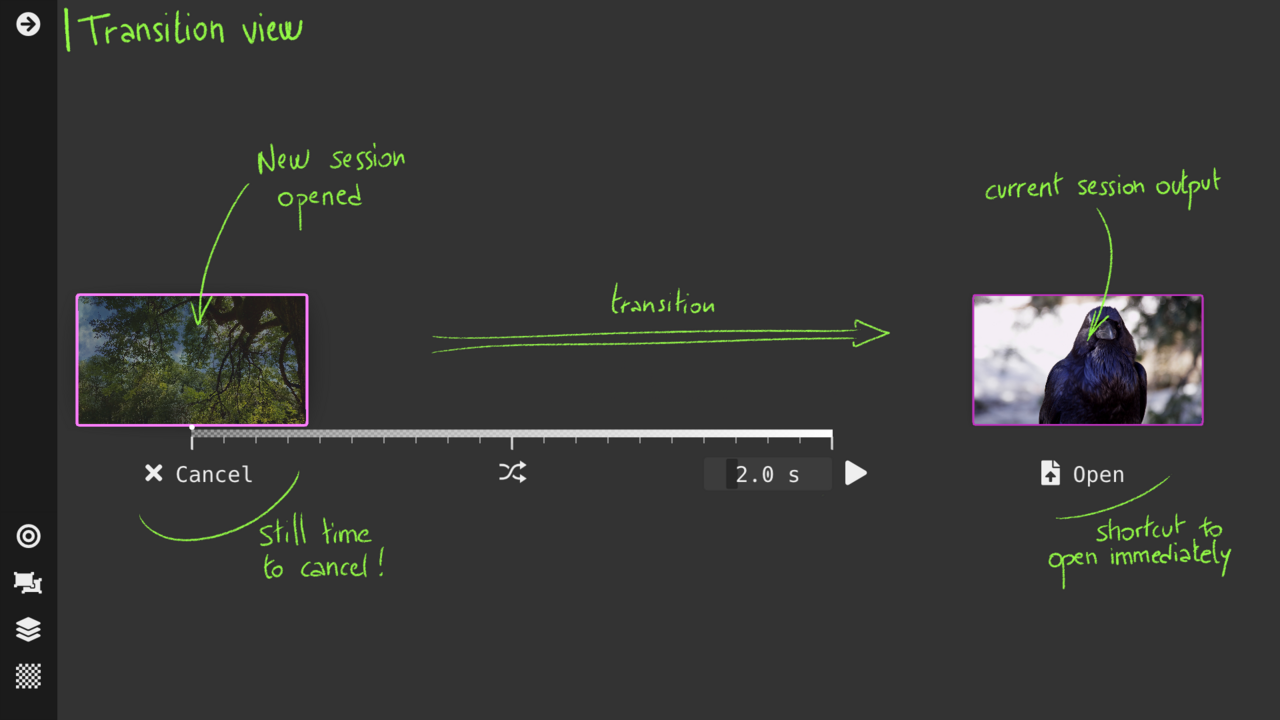 Transition view
New session
opened
current session output
transition
Cancel
2.0 s
Open
Still time
to cancel!
shortcut to
open immediately